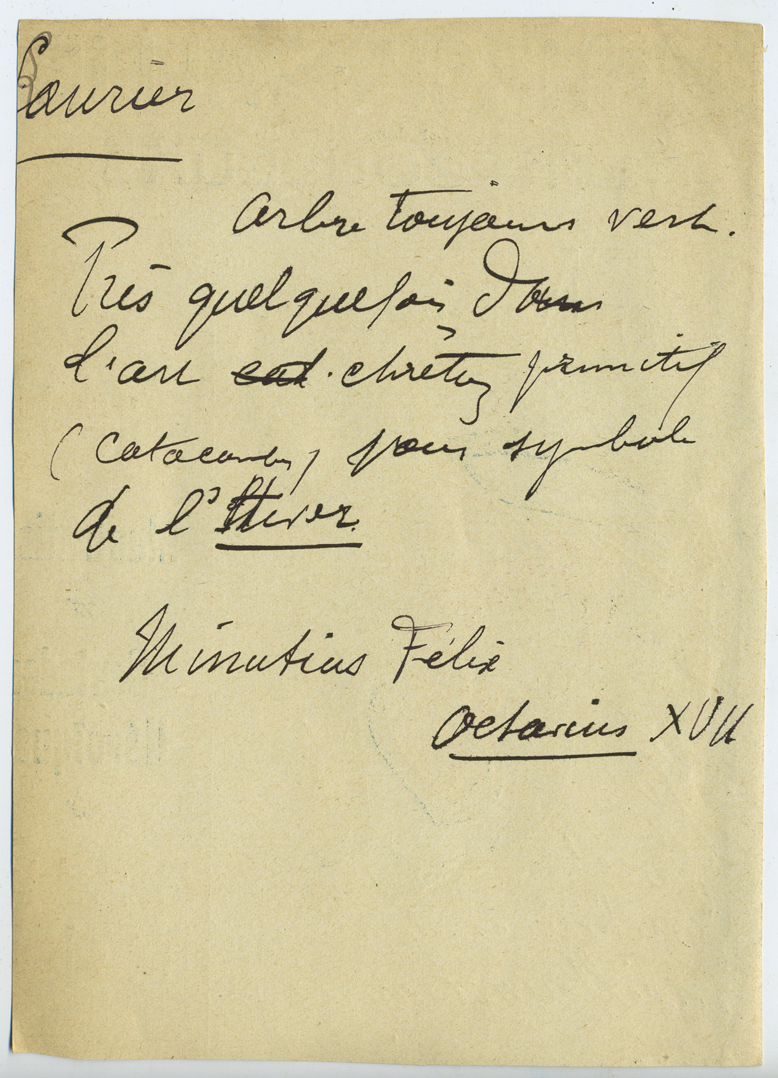 Laurier
Arbre toujours vert.
Près quelquefois dans
l'art cat. chrétien primitif
(catacombes) pour symbole
de l'Hiver.
Minutius Félix
Octavius XVII